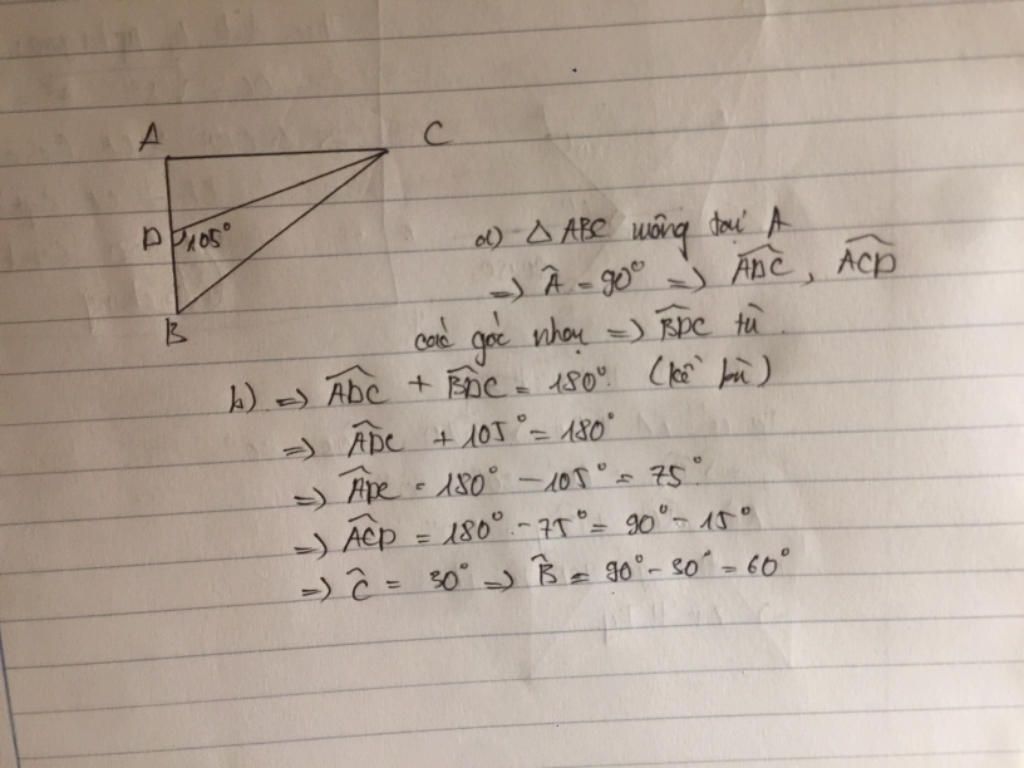 A
C
D 105°
B
a) △ ABC vuông tại A
=> Â = 90° => \widehat{ADC}, \widehat{ACD}
các góc nhọn => \widehat{BDC} tù.
b) => \widehat{ADC} + \widehat{BDC} = 180°. (kề bù)
=> \widehat{ADC} + 105° = 180°
=> \widehat{ADC} = 180° - 105° = 75°
=> \widehat{ACD} = 180° - 75° = 90° - 15°
=> Ĉ = 30° => B̂ = 90° - 30° = 60°